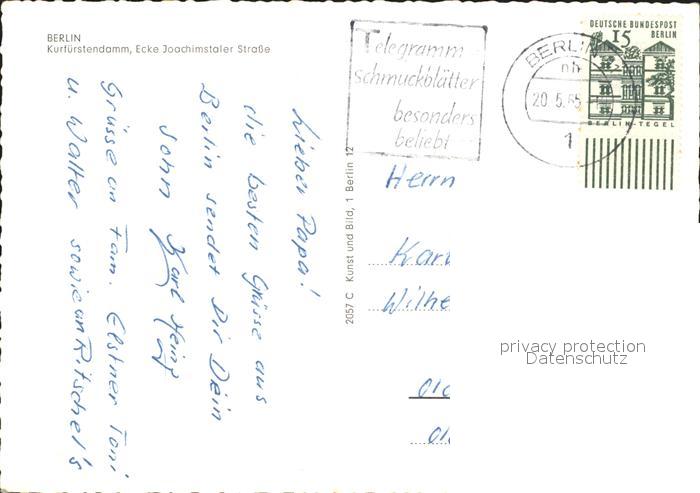 BERLIN
Kurfürstendamm, Ecke Joachimstaler Straße
Telegramm
schmuckblätter
besonders
beliebt
BERLIN
20.5.65
1
DEUTSCHE BUNDESPOST
15 BERLIN
BERLIN-TEGEL
Lieber Papa!
die besten Grüsse aus
Berlin sendet Dir Dein
Sohn Karl Heinz
Grüsse an Fam. Elstner Toni
u. Walter sowie an Ritschel's
2057 C Kunst und Bild, 1 Berlin 12
Herrn
Karl
Wilhe
privacy protection
Datenschutz